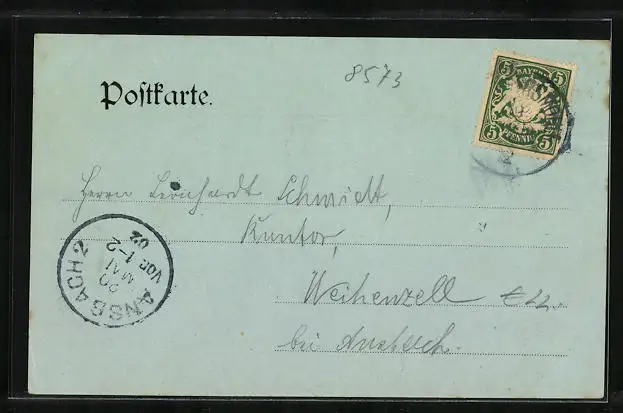 8573
Postkarte.
5 BAYERN 5
5 PFENNIG 5
Herrn Leonhardt Schmidt,
Kantor,
Weihenzell
bei Ansbach.
ANSBACH 2
20
MAI
VOR 1-2
02